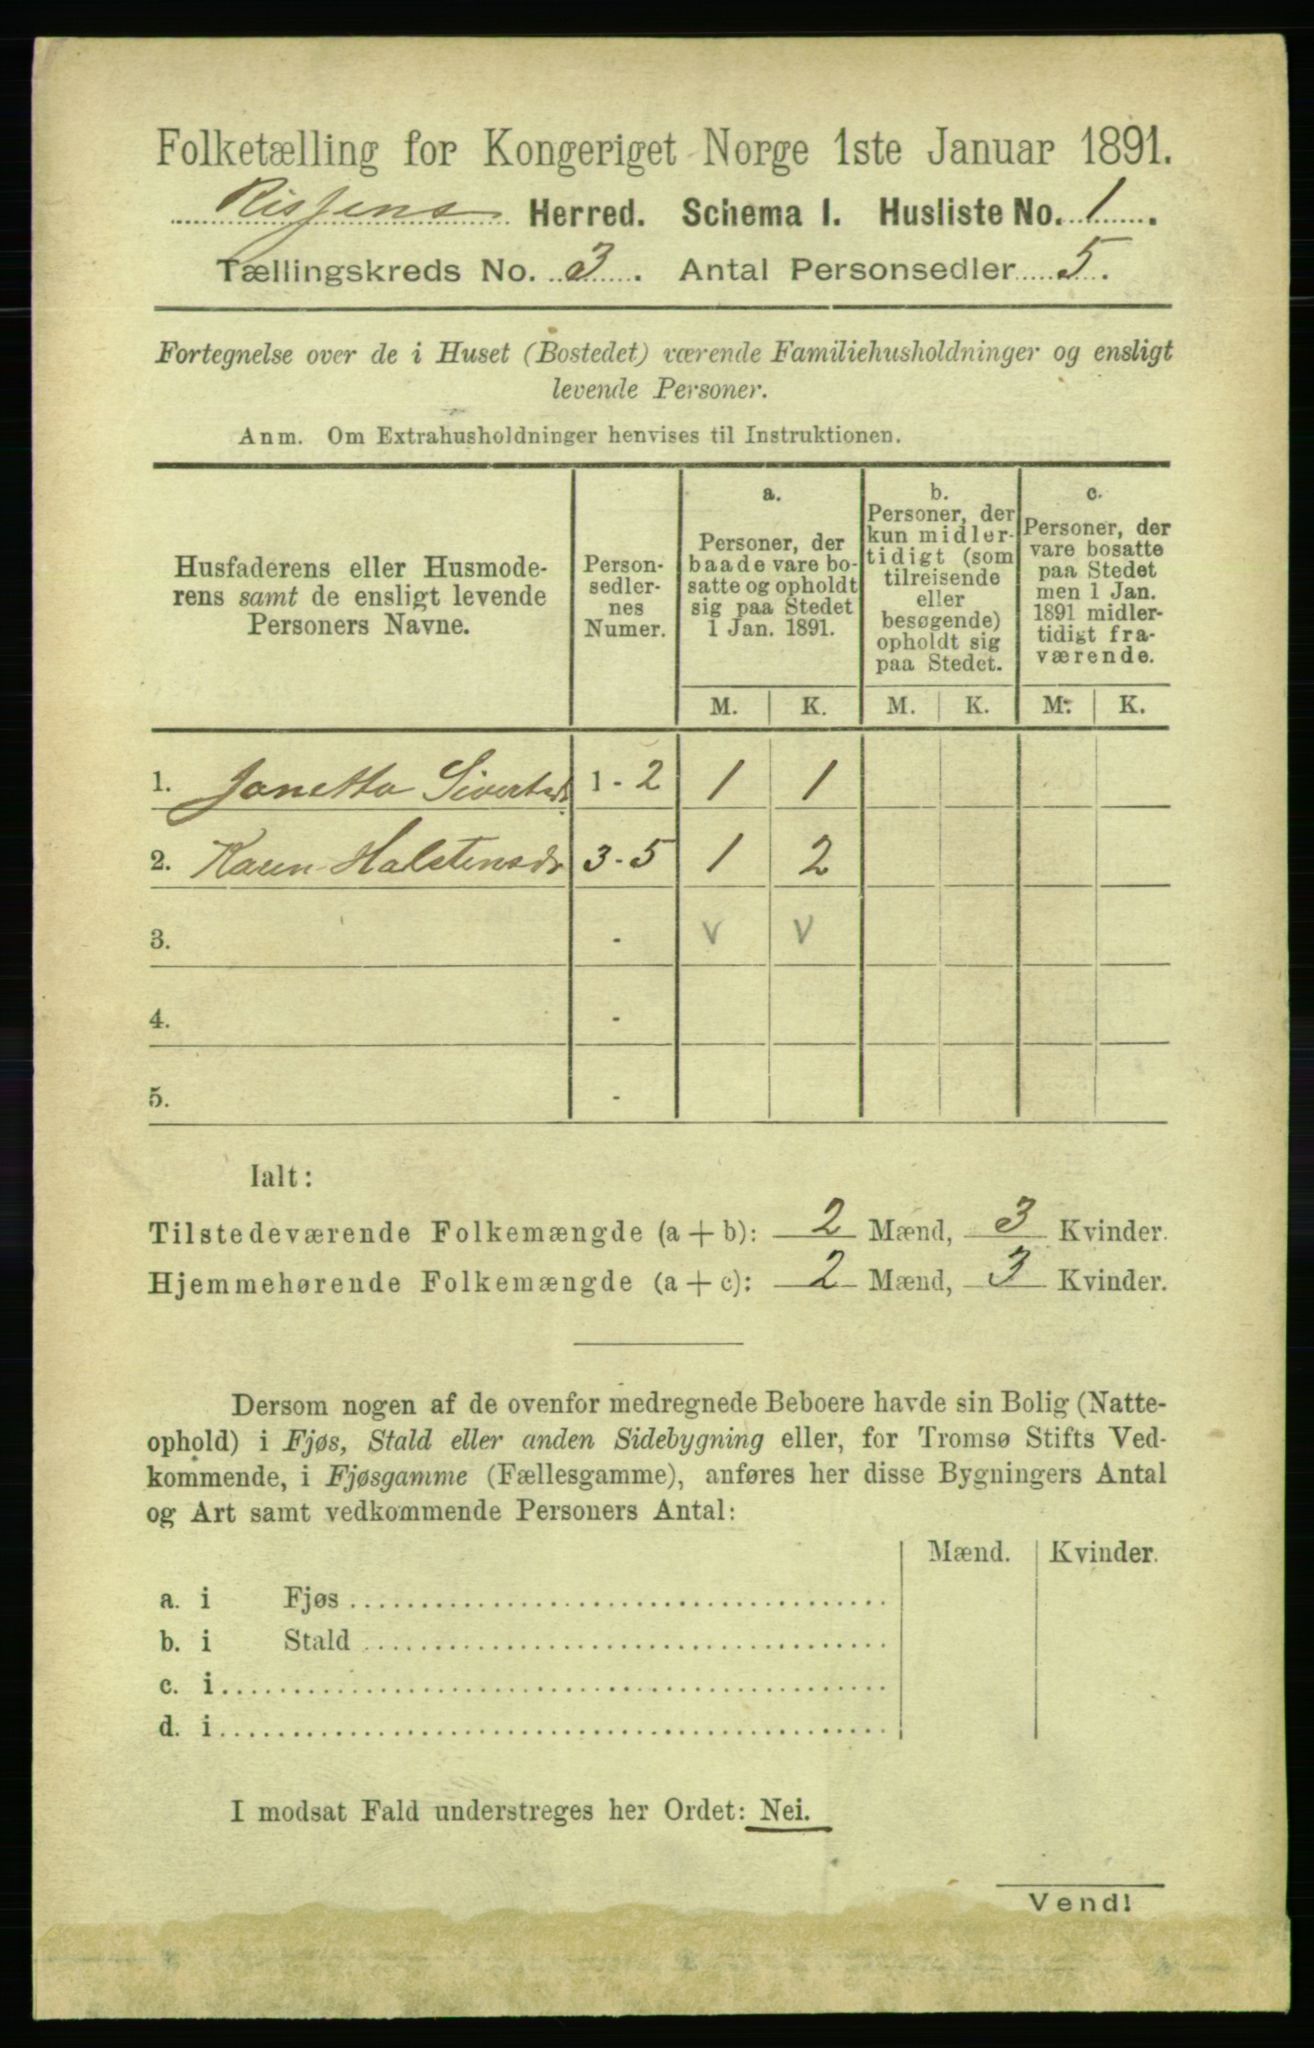 Folketælling for Kongeriget Norge 1ste Januar 1891.
Rissens Herred. Schema I. Husliste No. 1.
Tællingskreds No. 3. Antal Personsedler 5.
Fortegnelse over de i Huset (Bostedet) værende Familiehusholdninger og ensligt
levende Personer.
Anm. Om Extrahusholdninger henvises til Instruktionen.
Husfaderens eller Husmode-
rens samt de ensligt levende
Personers Navne.
Person-
sedler-
nes
Numer.
a.
Personer, der
baade vare bo-
satte og opholdt
sig paa Stedet
1 Jan. 1891.
b.
Personer, der
kun midler-
tidigt (som
tilreisende
eller
besøgende)
opholdt sig
paa Stedet.
c.
Personer, der
vare bosatte
paa Stedet
men 1 Jan.
1891 midler-
tidigt fra-
værende.
M. K. M. K. M. K.
1. Janetta Sivertsd. 1 - 2 1 1
2. Karen Halstensdr 3 - 5 1 2
3. - v v
4. -
5. -
Ialt:
Tilstedeværende Folkemængde (a + b): 2 Mænd, 3 Kvinder.
Hjemmehørende Folkemængde (a + c): 2 Mænd, 3 Kvinder.
Dersom nogen af de ovenfor medregnede Beboere havde sin Bolig (Natte-
ophold) i Fjøs, Stald eller anden Sidebygning eller, for Tromsø Stifts Ved-
kommende, i Fjøsgamme (Fællesgamme), anføres her disse Bygningers Antal
og Art samt vedkommende Personers Antal:
Mænd. Kvinder.
a. i Fjøs
b. i Stald
c. i
d. i
I modsat Fald understreges her Ordet: Nei.
Vend!